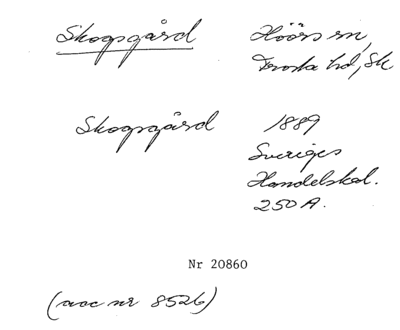 Skogsgård Höörs sn,
Frosta hd, Sk
Skogsgård 1889
Sveriges
Handelskal.
250 A.
Nr 20860
(acc nr 8526)